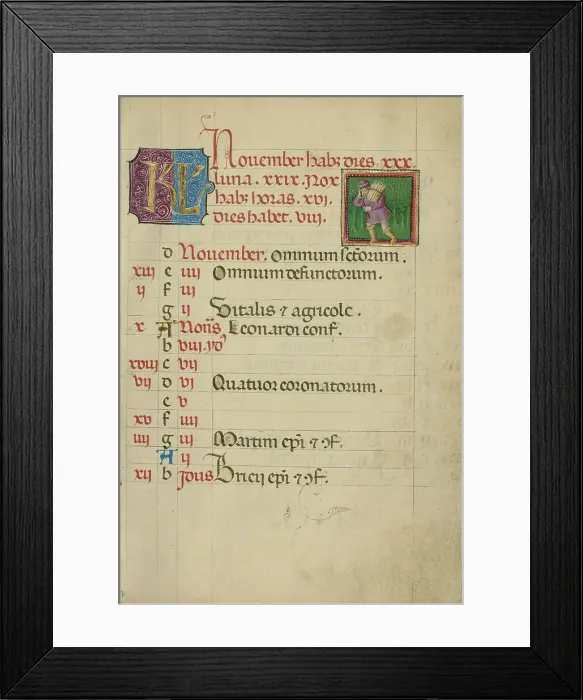 KL
Nouember habꝫ dies xxx.
luna. xxix. Nox
habꝫ horas. xvj.
dies habet. viij.
d Nouember. Omnium sctorum.
xiij e iiij Omnium defunctorum.
ij f iij
g ij Vitalis ⁊ agricole.
x A Noñs Leonardi conf.
b viij. yđ
xviij c vij
vij d vj Quatuor coronatorum.
e v
xv f iiij
iiij g iij Martini epi ⁊ ɔf.
A ij
xij b Idus Bricij epi ⁊ ɔf.